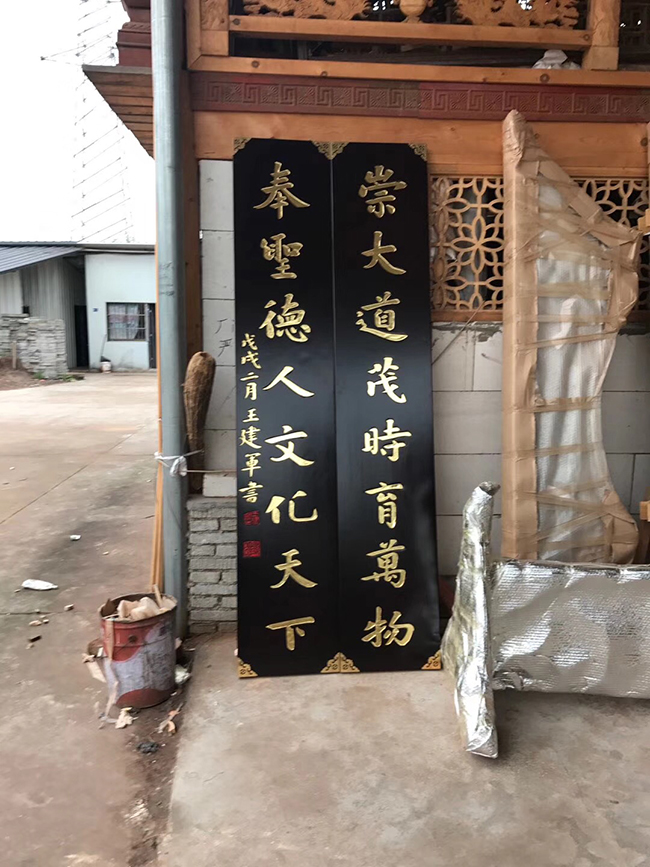 崇大道茂時育萬物
奉聖德人文化天下
戊戌二月王建軍書